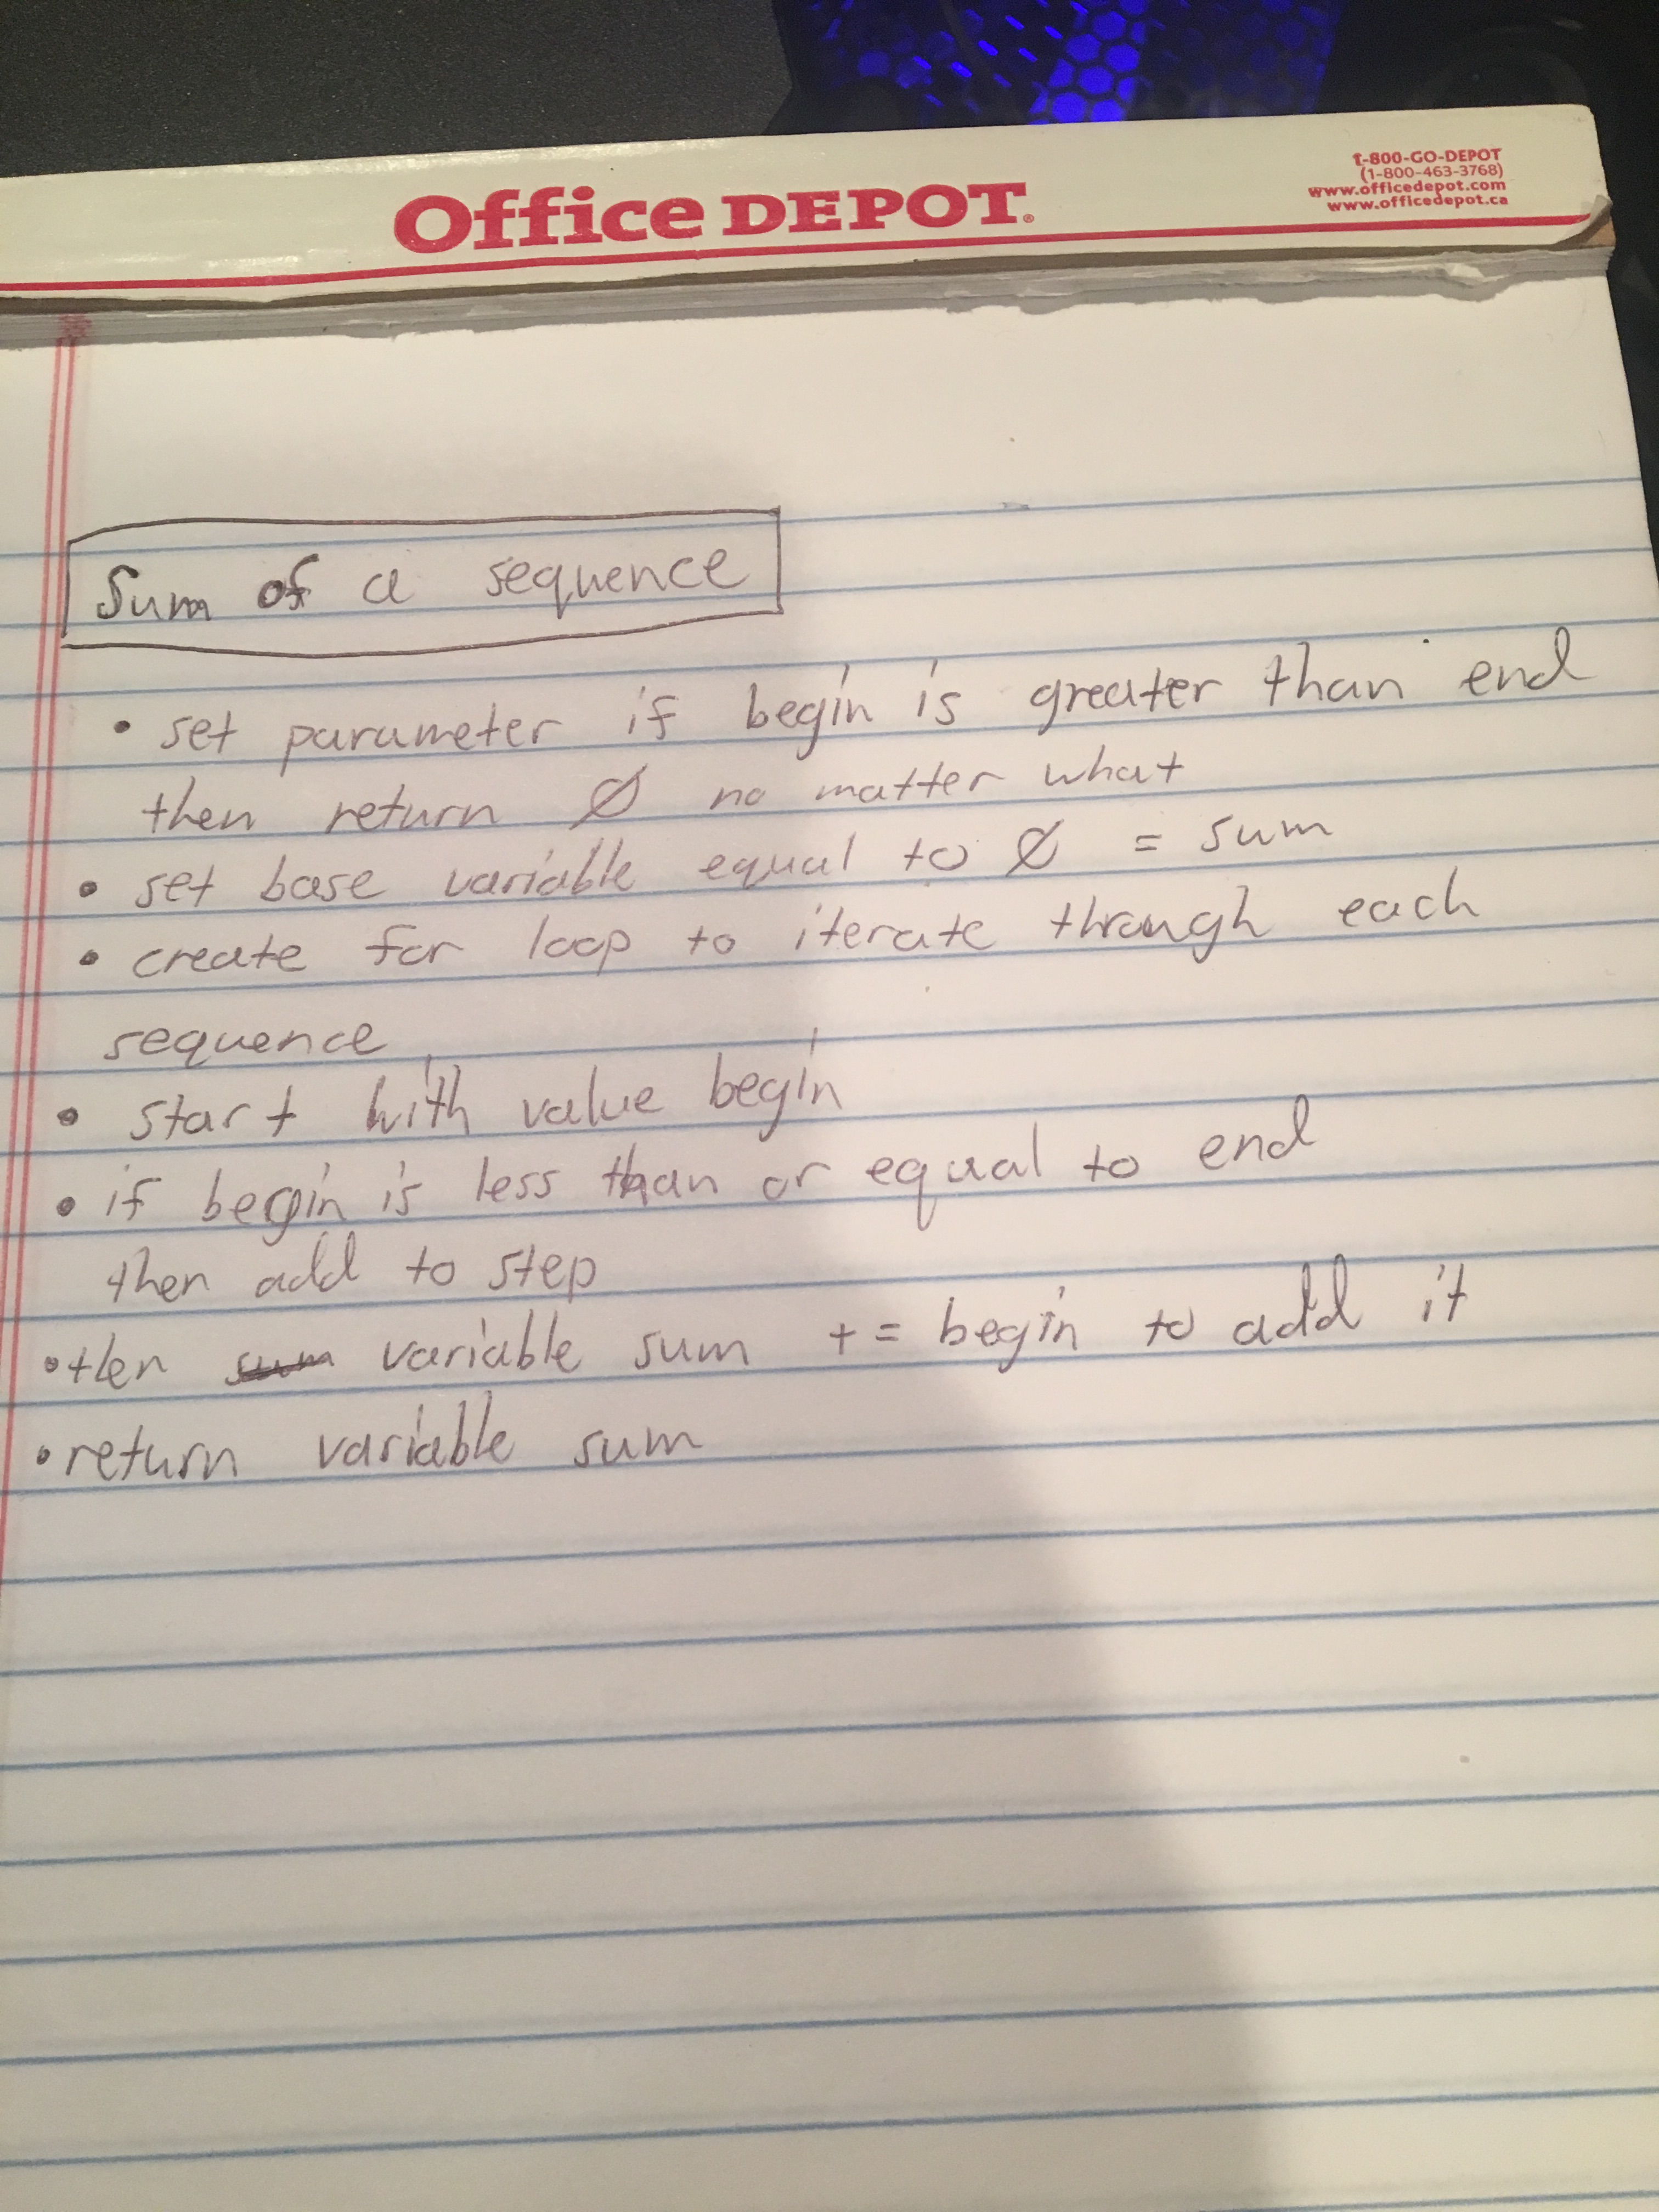 Office DEPOT.
1-800-GO-DEPOT
(1-800-463-3768)
www.officedepot.com
www.officedepot.ca
Sum of a sequence
• set parameter if begin is greater than end
then return Ø no matter what
• set base variable equal to Ø = sum
• create for loop to iterate through each
sequence
• start with value begin
• if begin is less than or equal to end
then add to step
• then sum variable sum += begin to add it
• return variable sum